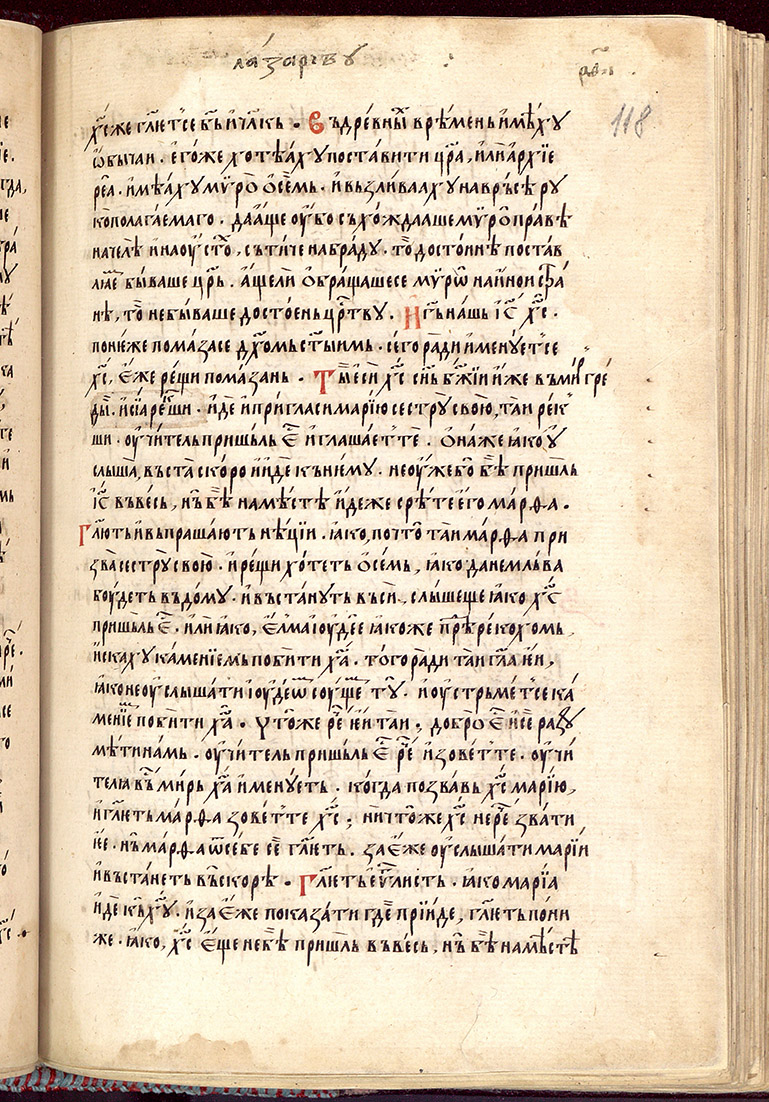 лазаревѹ
118
хс҃ же гл҃ет се бъ҃ и чл҃кь · Въ дрѣвнꙑ врѣмень имѣхѹ
ѡбычаи · егоже хотѣахѹ поставити цр҃а, или архїе
реа · имѣахѹ мѵро ѻсемь · и вьзливаахѹ на врьсѣ рѹ
кополагаемаго · да аще ѹбо съхождааше мѵро правѣ
на челѣ и на ѹста, сътиче на браду · то достоинѣ постав
лꙗе бываше цр҃ь · аще ли ѻбращаше се мѵрѡ на инои стра
нѣ, то не бываше достоень цр҃тву · И гь҃ нашь іс҃ хс҃ ·
понеже помаза се дх҃омь ст҃ыимь · сего ради именует се
хс҃, еже рещи помазань · Ты еси хс҃ сн҃ь бж҃їи иже въ мир гре
ды · и сїа рекши · иде и пригласи марїю сестрѹ свою, таи рек
ши · ѹчитель пришьль е҃ и глашает те · ѻна же ꙗко ѹ
слыша, въста скоро и иде къ нѥмѹ · не ѹже бо бѣ пришьль
іс҃ въ вьсь, нь бѣ на мѣстѣ идеже срѣте его марѳа ·
Гл҃ють и выпрашають нѣцїи · ꙗко, почто таи марѳа при
зва сестрѹ свою · и рещи хотеть ѻсемь, ꙗко да не мльва
бѹдеть въ домѹ · и въстанѹть вьси, слышеще ꙗко хс҃
пришьль е҃ · или ꙗко, елма іѹдее ꙗкоже прѣрекохомь,
искахѹ каменїемь побити ха҃ · того ради таи гл҃а ѥи,
ꙗко не ѹслышати іѹдеѡм сѹще тѹ · и ѹстрьмет се ка
менїе побити ха҃ · Что же рече ѥи таи ; добро е҃ и се разѹ
мѣти намь · ѹчитель пришьль е҃ рече и зовет те · ѹчи
телꙗ въ мирь ха҃ именѹеть · когда позвавь хс҃ марїю,
и гл҃еть марѳа зовет те хс҃ ; ничтоже хс҃ не рече звати
ѥе · нь марѳа ѿ себе се гл҃еть · за еже ѹслышати марїи
и въстанеть въскорѣ · Гл҃еть еѵ҃листь · ꙗко марїа
иде къ хѹ҃ · и за еже показати где прїиде, гл҃еть пони
же · ꙗко, хс҃ еще не бѣ пришьль въ вьсь, нь бѣ на мѣстѣ